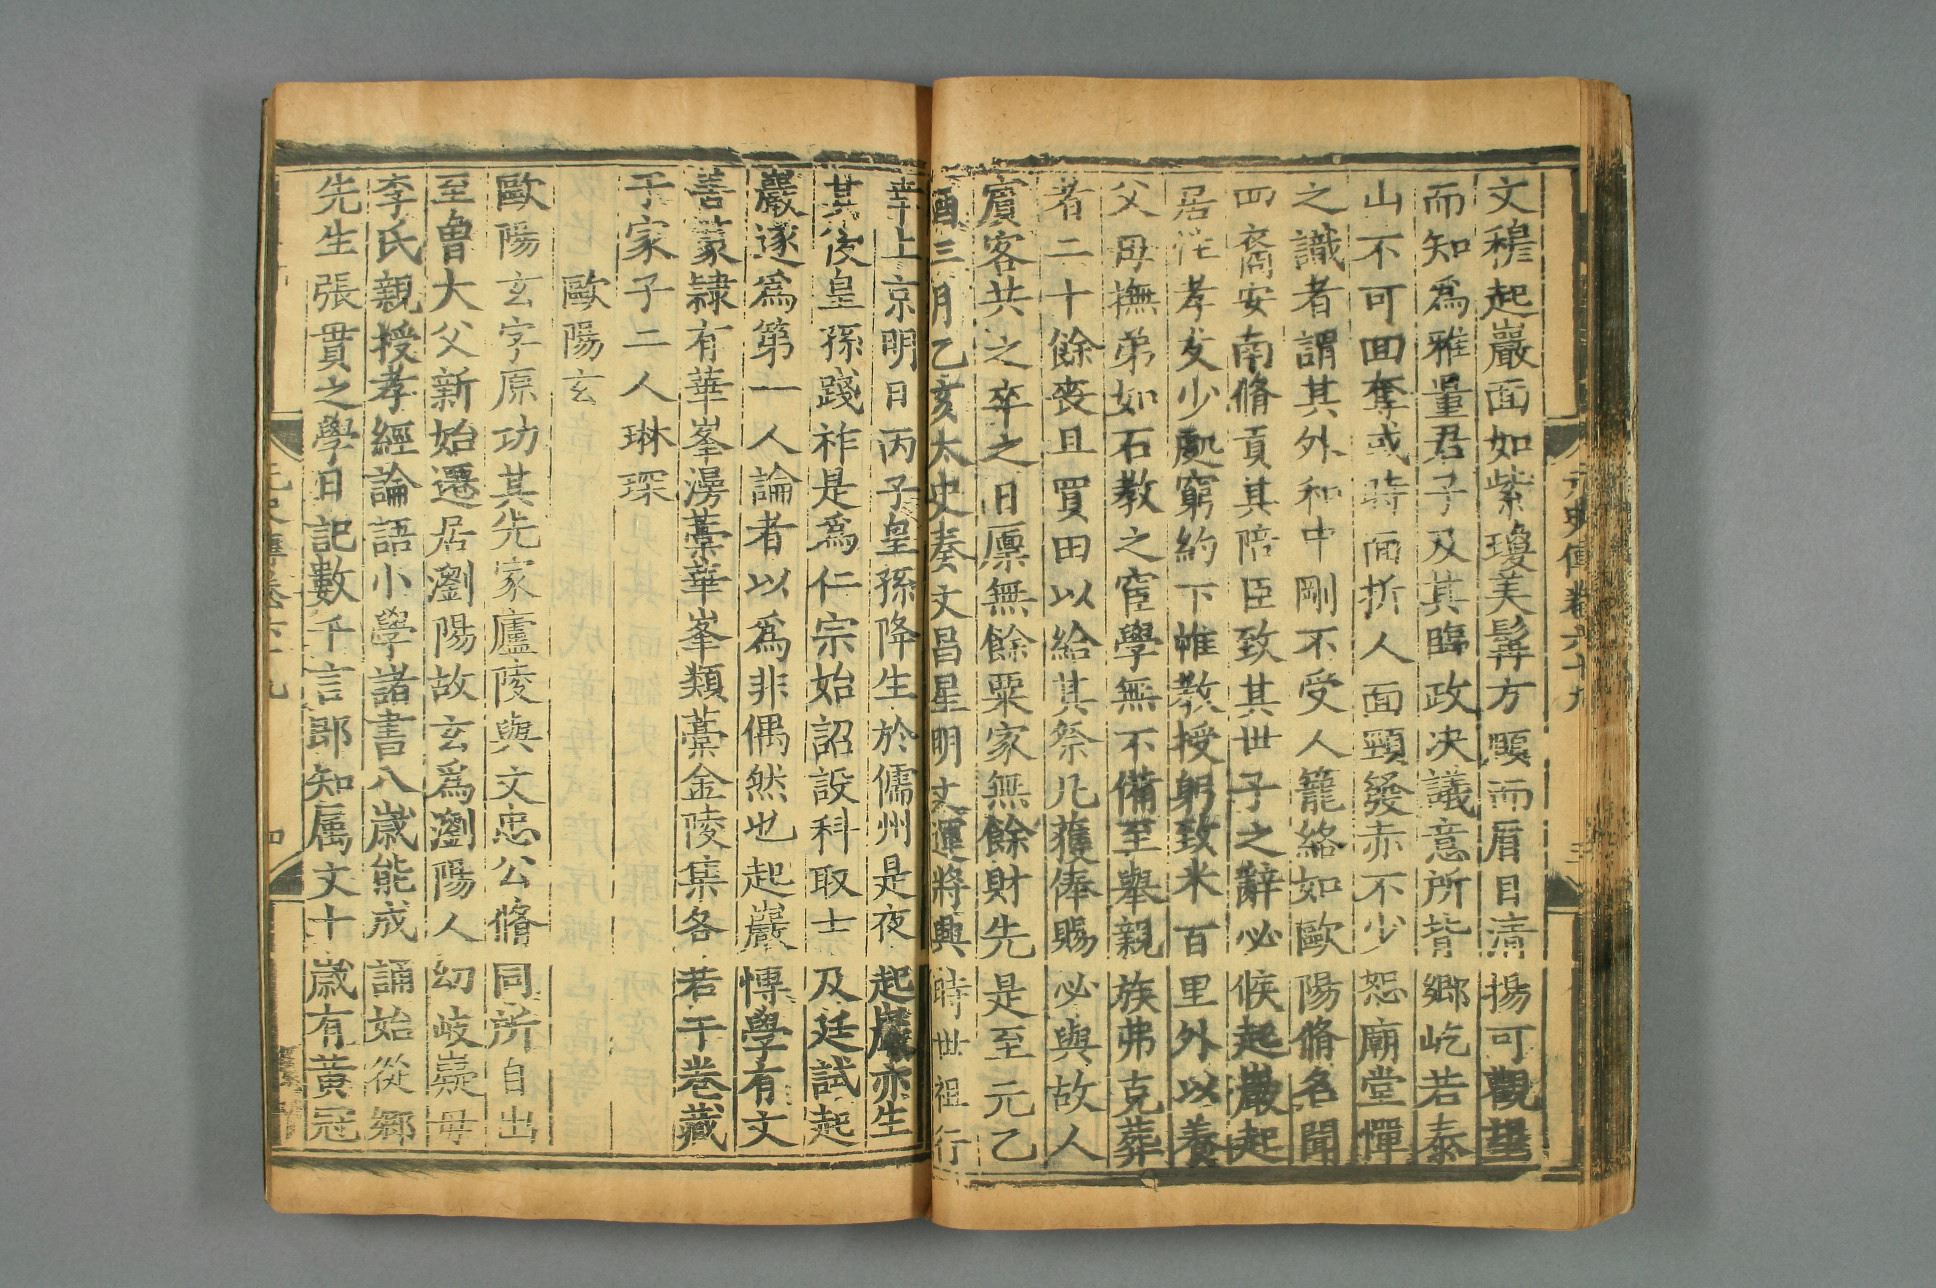 文穆起巖面如紫瓊美髯方頤而眉目清揚可觀望
而知爲雅量君子及其臨政决議意所背鄉屹若泰
山不可回奪或時面折人面頸發赤不少恕廟堂憚
之識者謂其外和中剛不受人籠絡如歐陽脩名聞
四裔安南脩貢其陪臣致其世子之辭必候起巖起
居性孝友少處窮約下帷教授躬致米百里外以養
父母撫弟如石教之宦學無不備至舉親族弗克葬
者二十餘喪且買田以給其祭凡獲俸賜必與故人
賓客共之卒之日廩無餘粟家無餘財先是至元乙
酉三月乙亥太史奏文昌星明文運將興時世祖行
幸上京明日丙子皇孫降生於儒州是夜起巖亦生
其後皇孫踐祚是爲仁宗始詔設科取士及廷試起
巖遂爲第一人論者以爲非偶然也起巖慱學有文
善篆隷有華峯漫藁華峯類藁金陵集各若干卷藏
于家子二人琳琛
歐陽玄
歐陽玄字原功其先家廬陵與文忠公脩同所自出
至曽大父新始遷居瀏陽故玄爲瀏陽人幼岐嶷母
李氏親授孝經論語小學諸書八歳能成誦始從鄉
先生張貫之學日記數千言即知属文十歳有黄冠
元史傳卷六十九
三
元史傳卷六十九
四